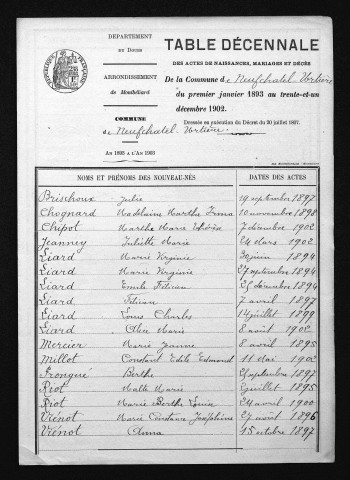 DÉPARTEMENT
du Doubs
ARRONDISSEMENT
de Montbéliard
COMMUNE
de Neufchatel-Urtière
AN 1893 A L'AN 1903
RÉPUBLIQUE FRANÇAISE
TABLE DÉCENNALE
DES ACTES DE NAISSANCES, MARIAGES ET DÉCÈS
De la Commune de Neufchatel-Urtière
du premier janvier 1893 au trente-et-un
décembre 1902.
Dressée en exécution du Décret du 20 juillet 1807.
NOMS ET PRÉNOMS DES NOUVEAU-NÉS DATES DES ACTES
Brischoux Julie 19 septembre 1897
Chognard Madelaine Marthe Irma 10 novembre 1898
Chipot Marthe Marie 7 décembre 1902
Jeanney Juliette Marie 24 mars 1902
Liard Marie Virginie juin 1894
Liard Marie Virginie 27 septembre 1894
Liard Emile Félicien 25 décembre 1894
Liard 7 avril 1897
Liard Louis Charles 14 juillet 1899
Liard Marie 8 août 1902
Mercier Marie Jeanne 8 avril 1895
Millot Constant Edmond 11 Mai 1902
Pronqué Berthe septembre 1897
Riot Marie juillet 1895
Riot Marie Berthe 24 avril 1900
Viénot Marie Constance Joséphine 27 août 1896
Viénot Anna 15 octobre 1897